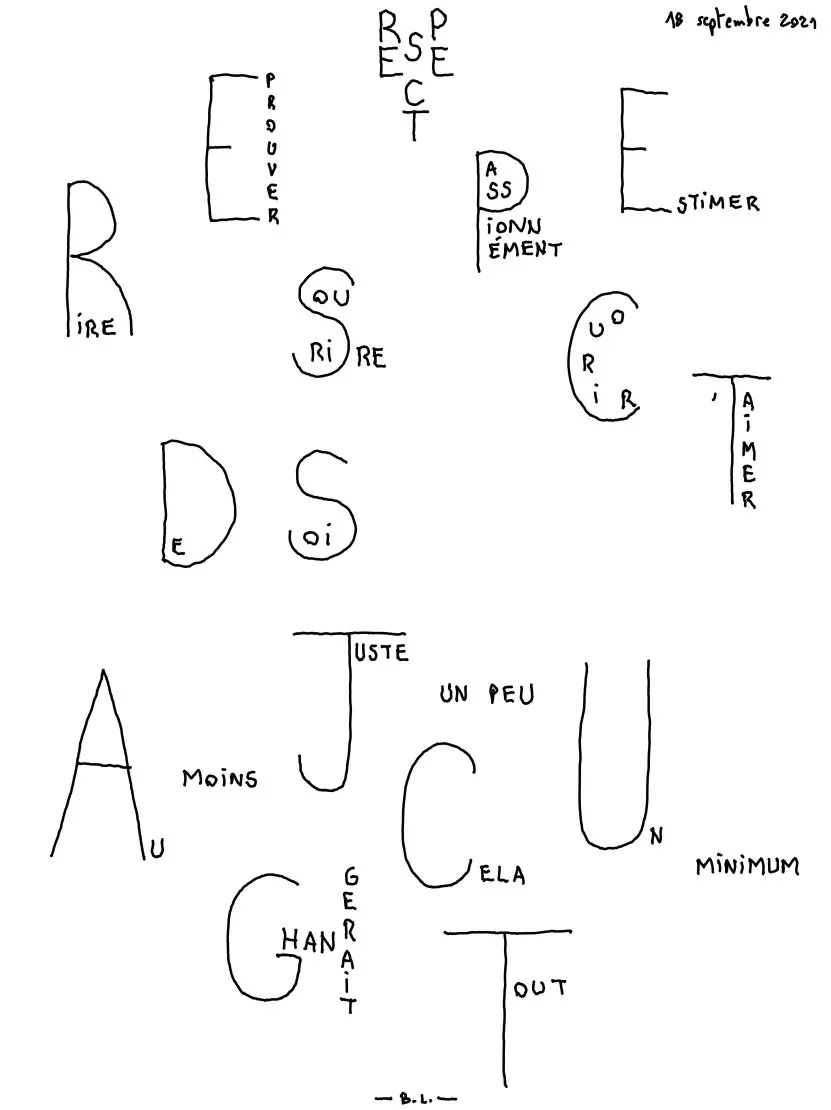 18 septembre 2021
RESPECT
RiRE
EPROUVER
SOURiRE
PASSiONNÉMENT
ESTiMER
COURiR
T'AiMER
DE
SOi
AU
MOiNS
JUSTE
UN PEU
CELA
UN
MiNiMUM
GHANGERAiT
TOUT
— B.L. —